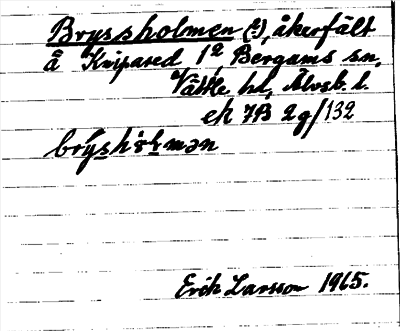 Bryssholmen (t), åkerfält
å Knipared 1⁰ Bergums sn,
Vättle hd, Älvsb. l.
ek 7B 2g/132
brýsh`ɷlmən
Erik Larsson 1965.